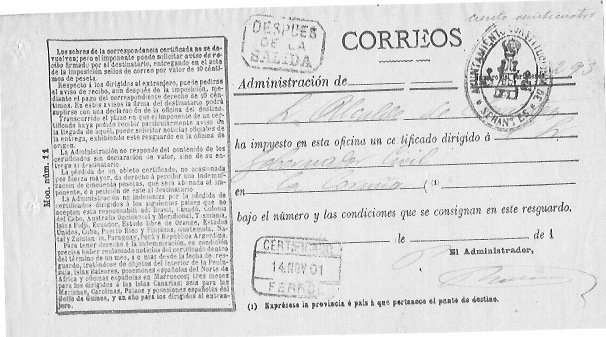 Mod. núm. 11
Los sobres de la correspondencia certificada no se de-
vuelven; pero el imponente puede solicitar aviso de re-
cibo firmado por el destinatario, entregando en el acto
de la imposición sellos de correo por valor de 10 cénti-
mos de peseta.
Respecto á los dirigidos al extranjero, puede pedirse
el aviso de recibo, aun después de la imposición, me-
diante el pago del correspondiente derecho de 10 cén-
timos. En estos avisos la firma del destinatario podrá
suplirse con una declaración de la oficina del destino.
Transcurrido el plazo en que el imponente de un cer-
tificado haya podido recibir particularmente aviso de
la llegada de aquél, puede solicitar noticias oficiales de
la entrega, exhibiendo este resguardo en la oficina de
origen.
La Administración no responde del contenido de los
certificados sin declaración de valor, sino de su en-
trega al destinatario.
La pérdida de un objeto certificado, no ocasionada
por fuerza mayor, da derecho á percibir una indemni-
zación de cincuenta pesetas, que será abonada al im-
ponente, ó á petición de éste al destinatario.
La Administración no indemniza por la pérdida de
certificados dirigidos á los siguientes países que no
aceptan esta responsabilidad: Brasil, Canadá, Colonia
del Cabo, Australia Occidental y Meridional, Tasmania,
Islas Fidji, Ecuador, Estado libre de Orange, Estados
Unidos, Cuba, Puerto Rico y Filipinas, Guatemala, Na-
tal y Zululan la, Paraguay, Perú y República Argentina.
Para tener derecho á la indemnización, es condición
precisa haber reclamado noticias del certificado dentro
del término de un mes, á contar desde la fecha de res-
guardo, tratándose de objetos del interior de la Penín-
sula, Islas Baleares, posesiones españolas del Norte de
Africa y oficinas españolas en Marruecos; tres meses
para los dirigidos á las Islas Canarias; seis para las
Marianas, Carolinas, Palaos y posesiones españolas del
Golfo de Guinea, y un año para los dirigidos al extran-
jero.
DESPUES
DE LA
SALIDA
CORREOS
Administración de
ha impuesto en esta oficina un certificado dirigido á
Gobernador Civil
en La Coruña (1)
bajo el número y las condiciones que se consignan en este resguardo.
le de de 1
El Administrador,
CERTIFICADO
14 NOV 01
FERROL
(1) Exprésese la provincia ó país á que pertenece el punto de destino.